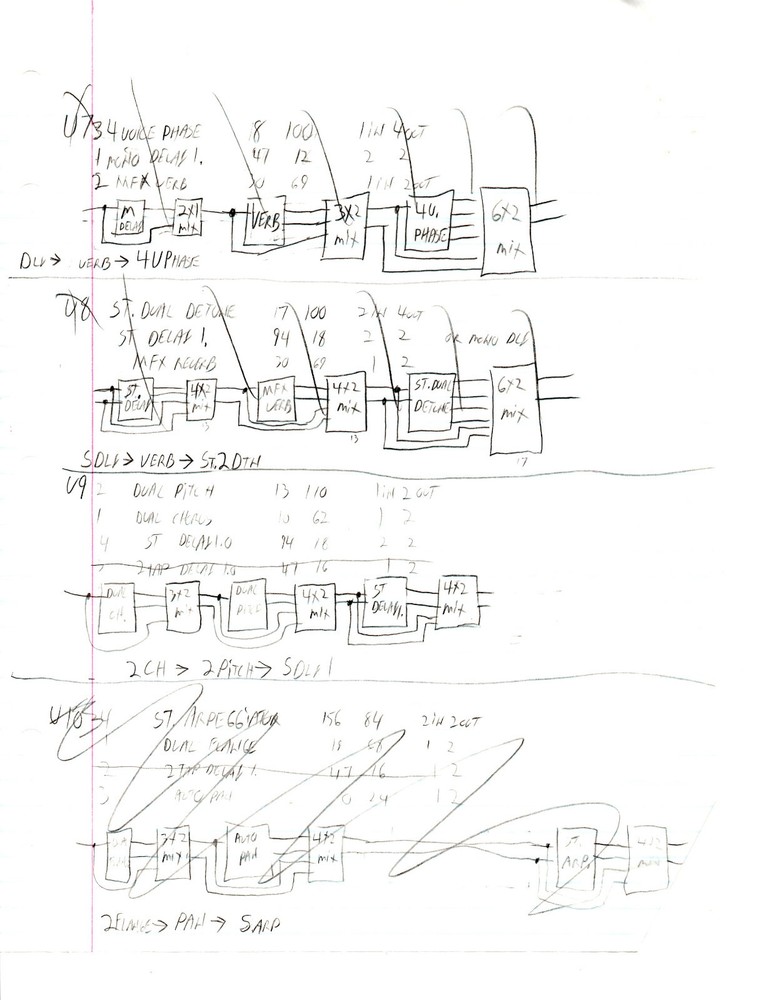 U7 34 VOICE PHASE 8 100 1 IN 4 OUT
1 MONO DELAY 1. 47 12 2 2
2 MFX VERB 30 69 1 IN 2 OUT
M DELAY 2X1 MIX VERB 3X2 MIX 4V. PHASE 6X2 MIX
DLY → VERB → 4VPHASE
U8 ST. DUAL DETUNE 17 100 2 IN 4 OUT
ST DELAY 1. 94 18 2 2 OR MONO DLY
MFX REVERB 30 69 1 2
ST. DELAY 4X2 MIX 13 MFX VERB 4X2 MIX 13 ST. DUAL DETUNE 6X2 MIX 17
SDLY → VERB → ST. 2DTN
U9 2 DUAL PITCH 13 110 1 IN 2 OUT
1 DUAL CHORUS 10 62 1 2
4 ST DELAY 1.0 94 18 2 2
3 2TAP DELAY 1.0 47 16 1 2
DUAL CH. 3X2 MIX DUAL 4X2 MIX ST DELAY 1. 4X2 MIX
2CH → 2PITCH → SDLY 1
U10 ST. ARPEGGIATOR 156 84 2 IN 2 OUT
1 DUAL FLANGE 1 2
2 2TAP DELAY 1. 47 16 1 2
3 AUTO PAN 24 1 2
3X2 MIX AUTO PAN 4X2 MIX ST. ARP. 4X2
2FLANGE → PAN → SARP